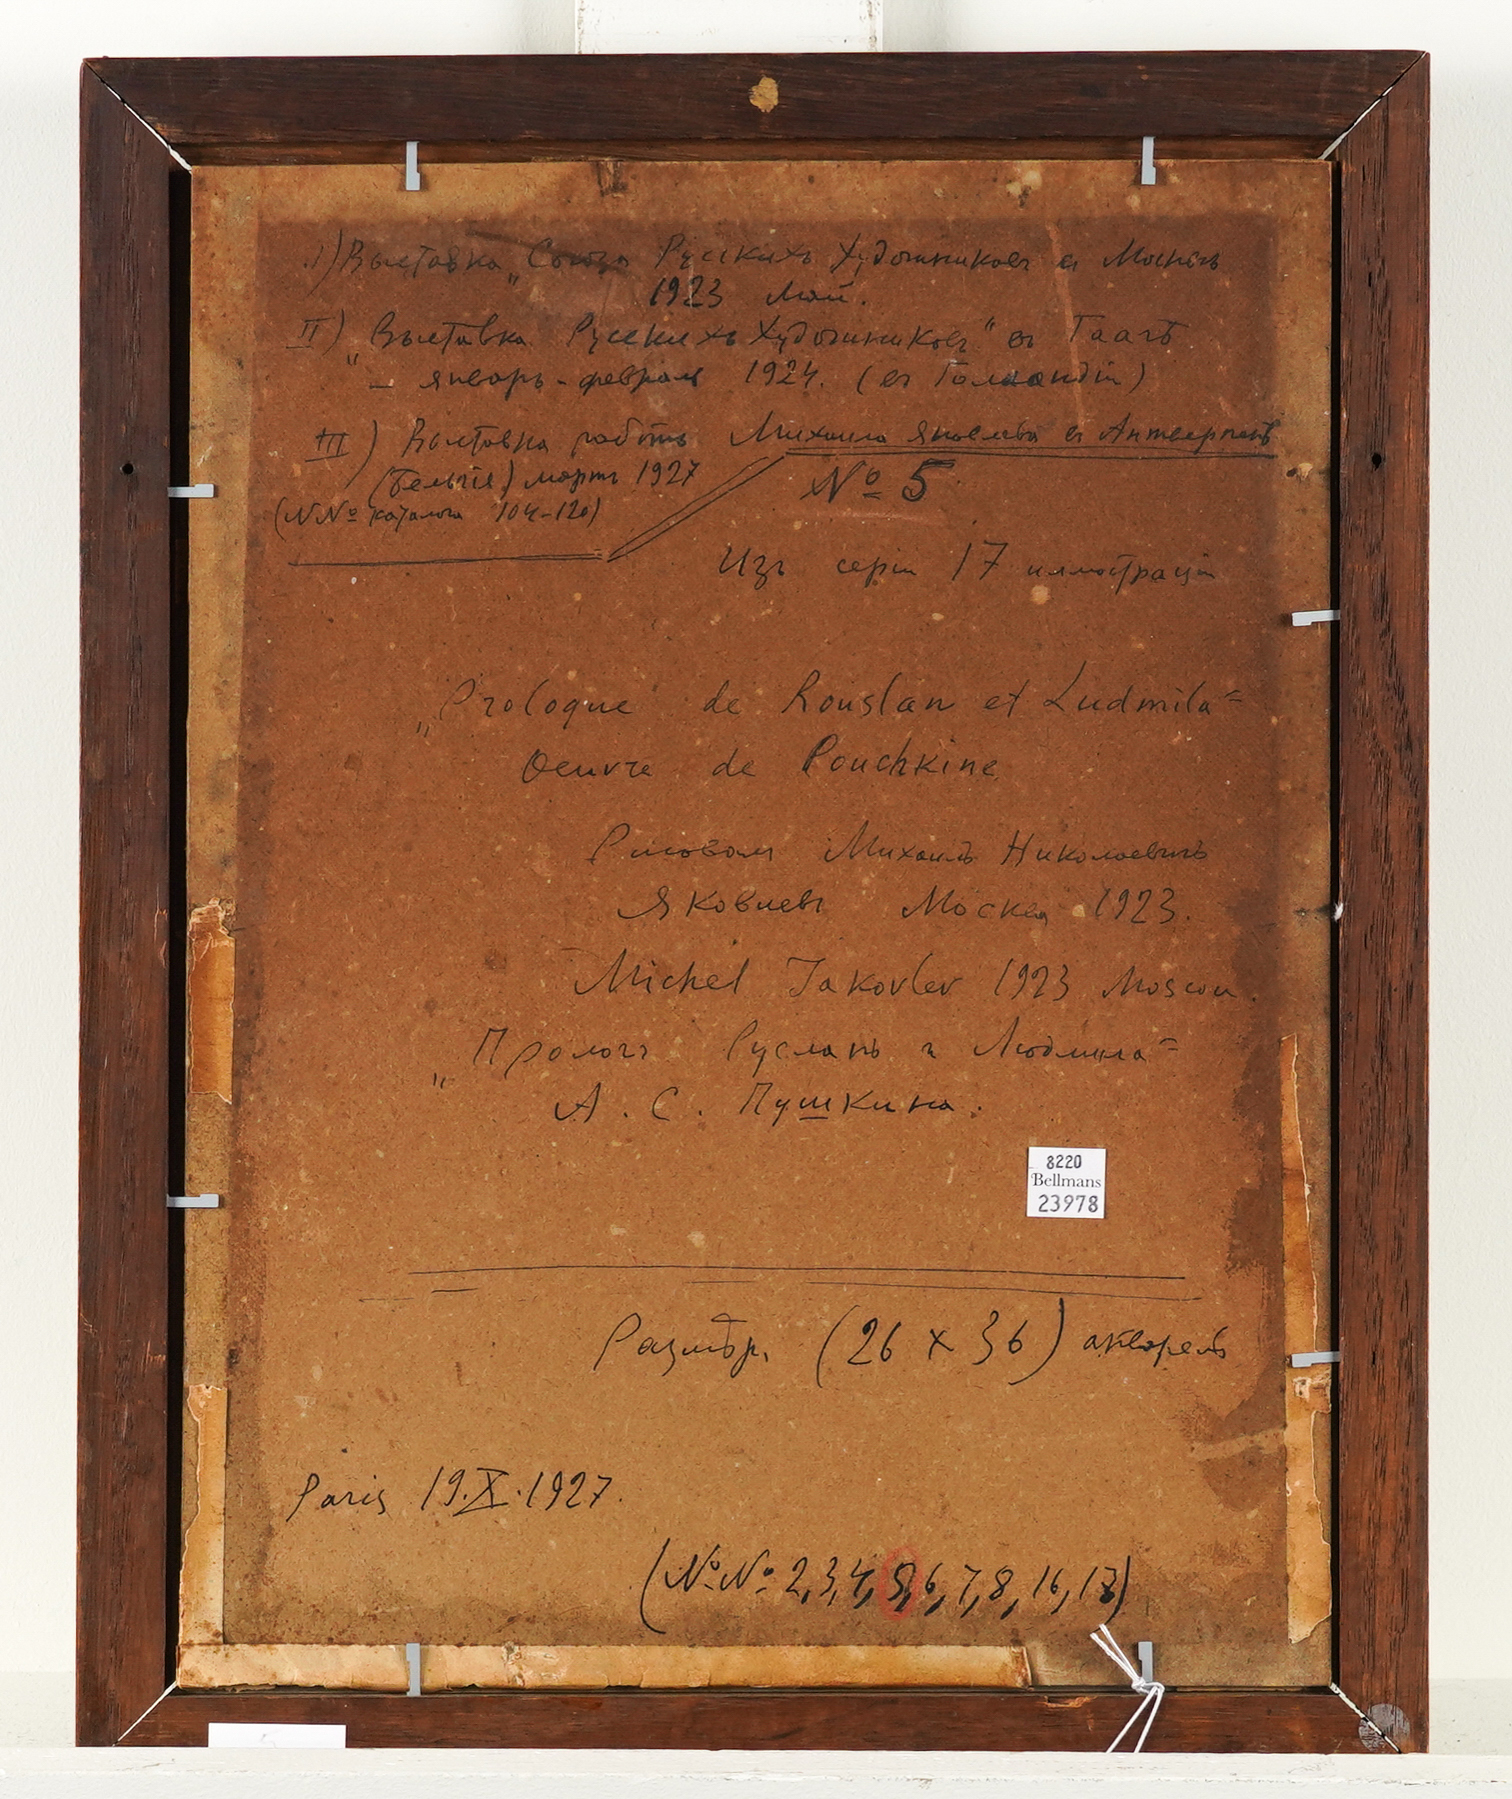 1) Выставка „Союза Русскихъ Художниковъ въ Москвѣ
1923 май.
II) „Выставка Русскихъ Художниковъ" въ Гаагѣ
– январь - февраль 1924. (въ Голландіи)
III) Выставка работъ Михаила Яковлева въ Антверпенѣ
(Бельгія) мартъ 1927
№ 5
(NNº каталога 104-120)
Изъ серіи 17 иллюстрацій
„Prologue de Rouslan et Ludmila"
Oeuvre de Pouchkine
Рисовалъ Михаилъ Николаевичъ
Яковлевъ Москва 1923.
Michel Jakovlev 1923 Moscou.
„Прологъ Русланъ и Людмила"
А. С. Пушкина.
8220
Bellmans
23978
Размѣръ (26 x 36) акварель
Paris 19.X.1927.
(№№ 2,3,4,5,6,7,8,16,17)